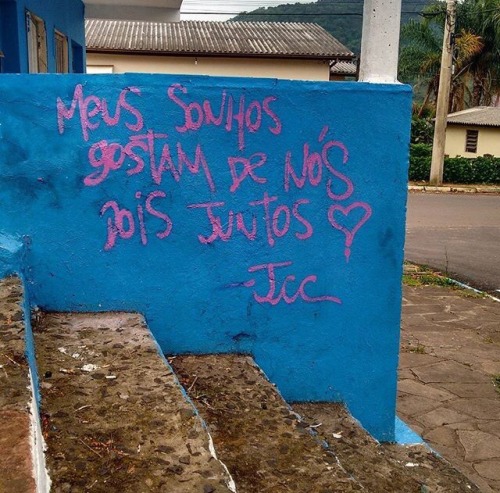 Meus Sonhos
gostam de nós
dois juntos
-Jcc